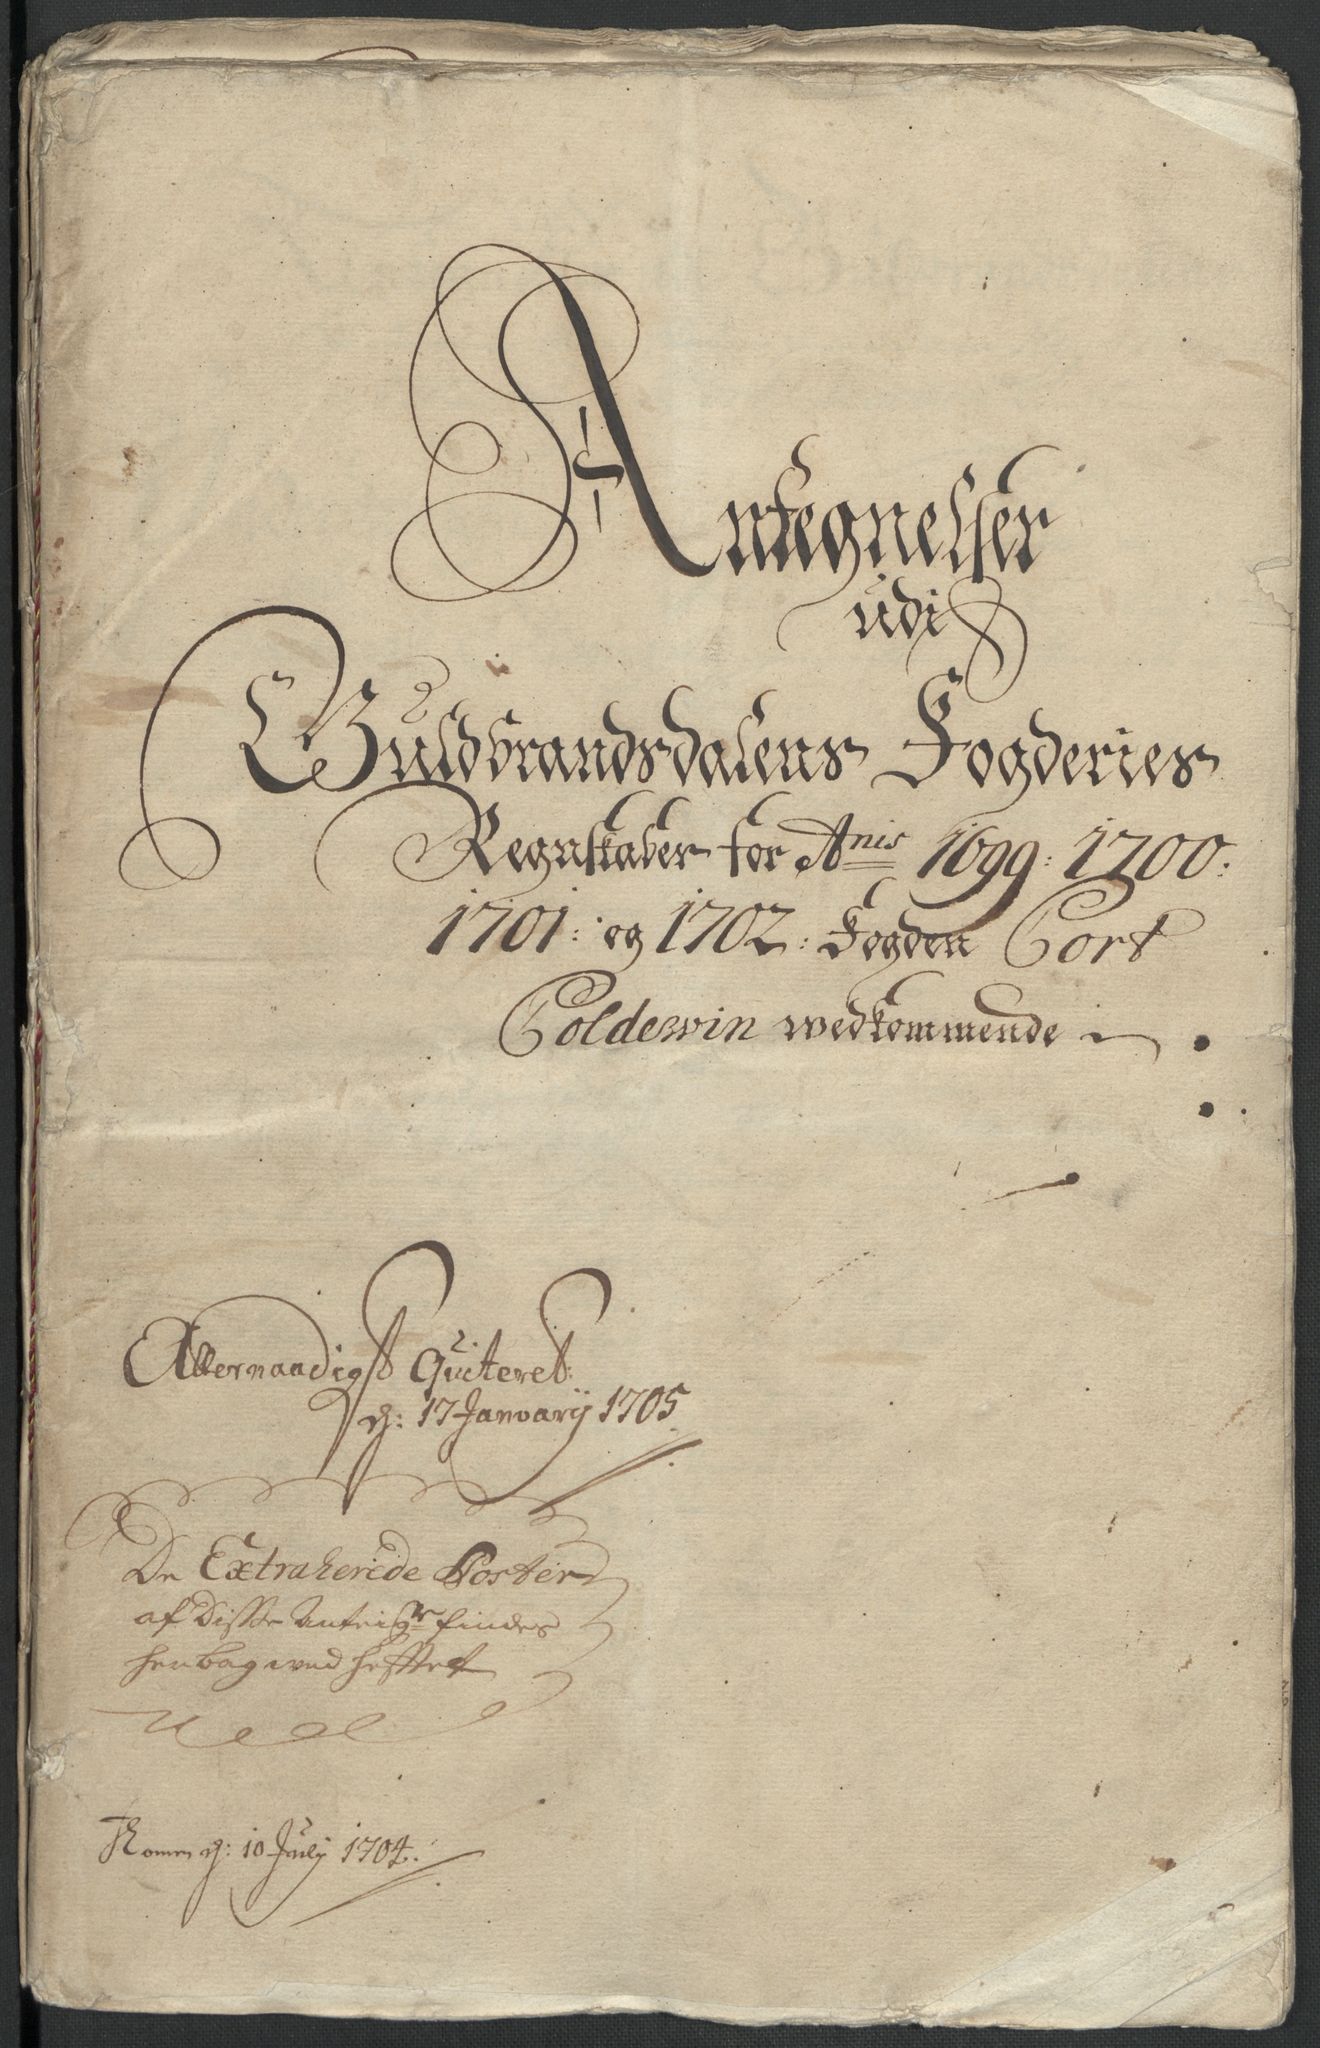 Antegnelser
udi
Guldbrandsdalens Fogderies
Regnskaber for Anis 1699: 1700:
1701: og 1702: Fogden Cort
Coldewin wedkommende
Allernaadigst Quiteret
d: 17 Januarij 1705
De Extraherede Poster
af disse findes
her bag wed hefftet
Komen d: 10 July 1704.